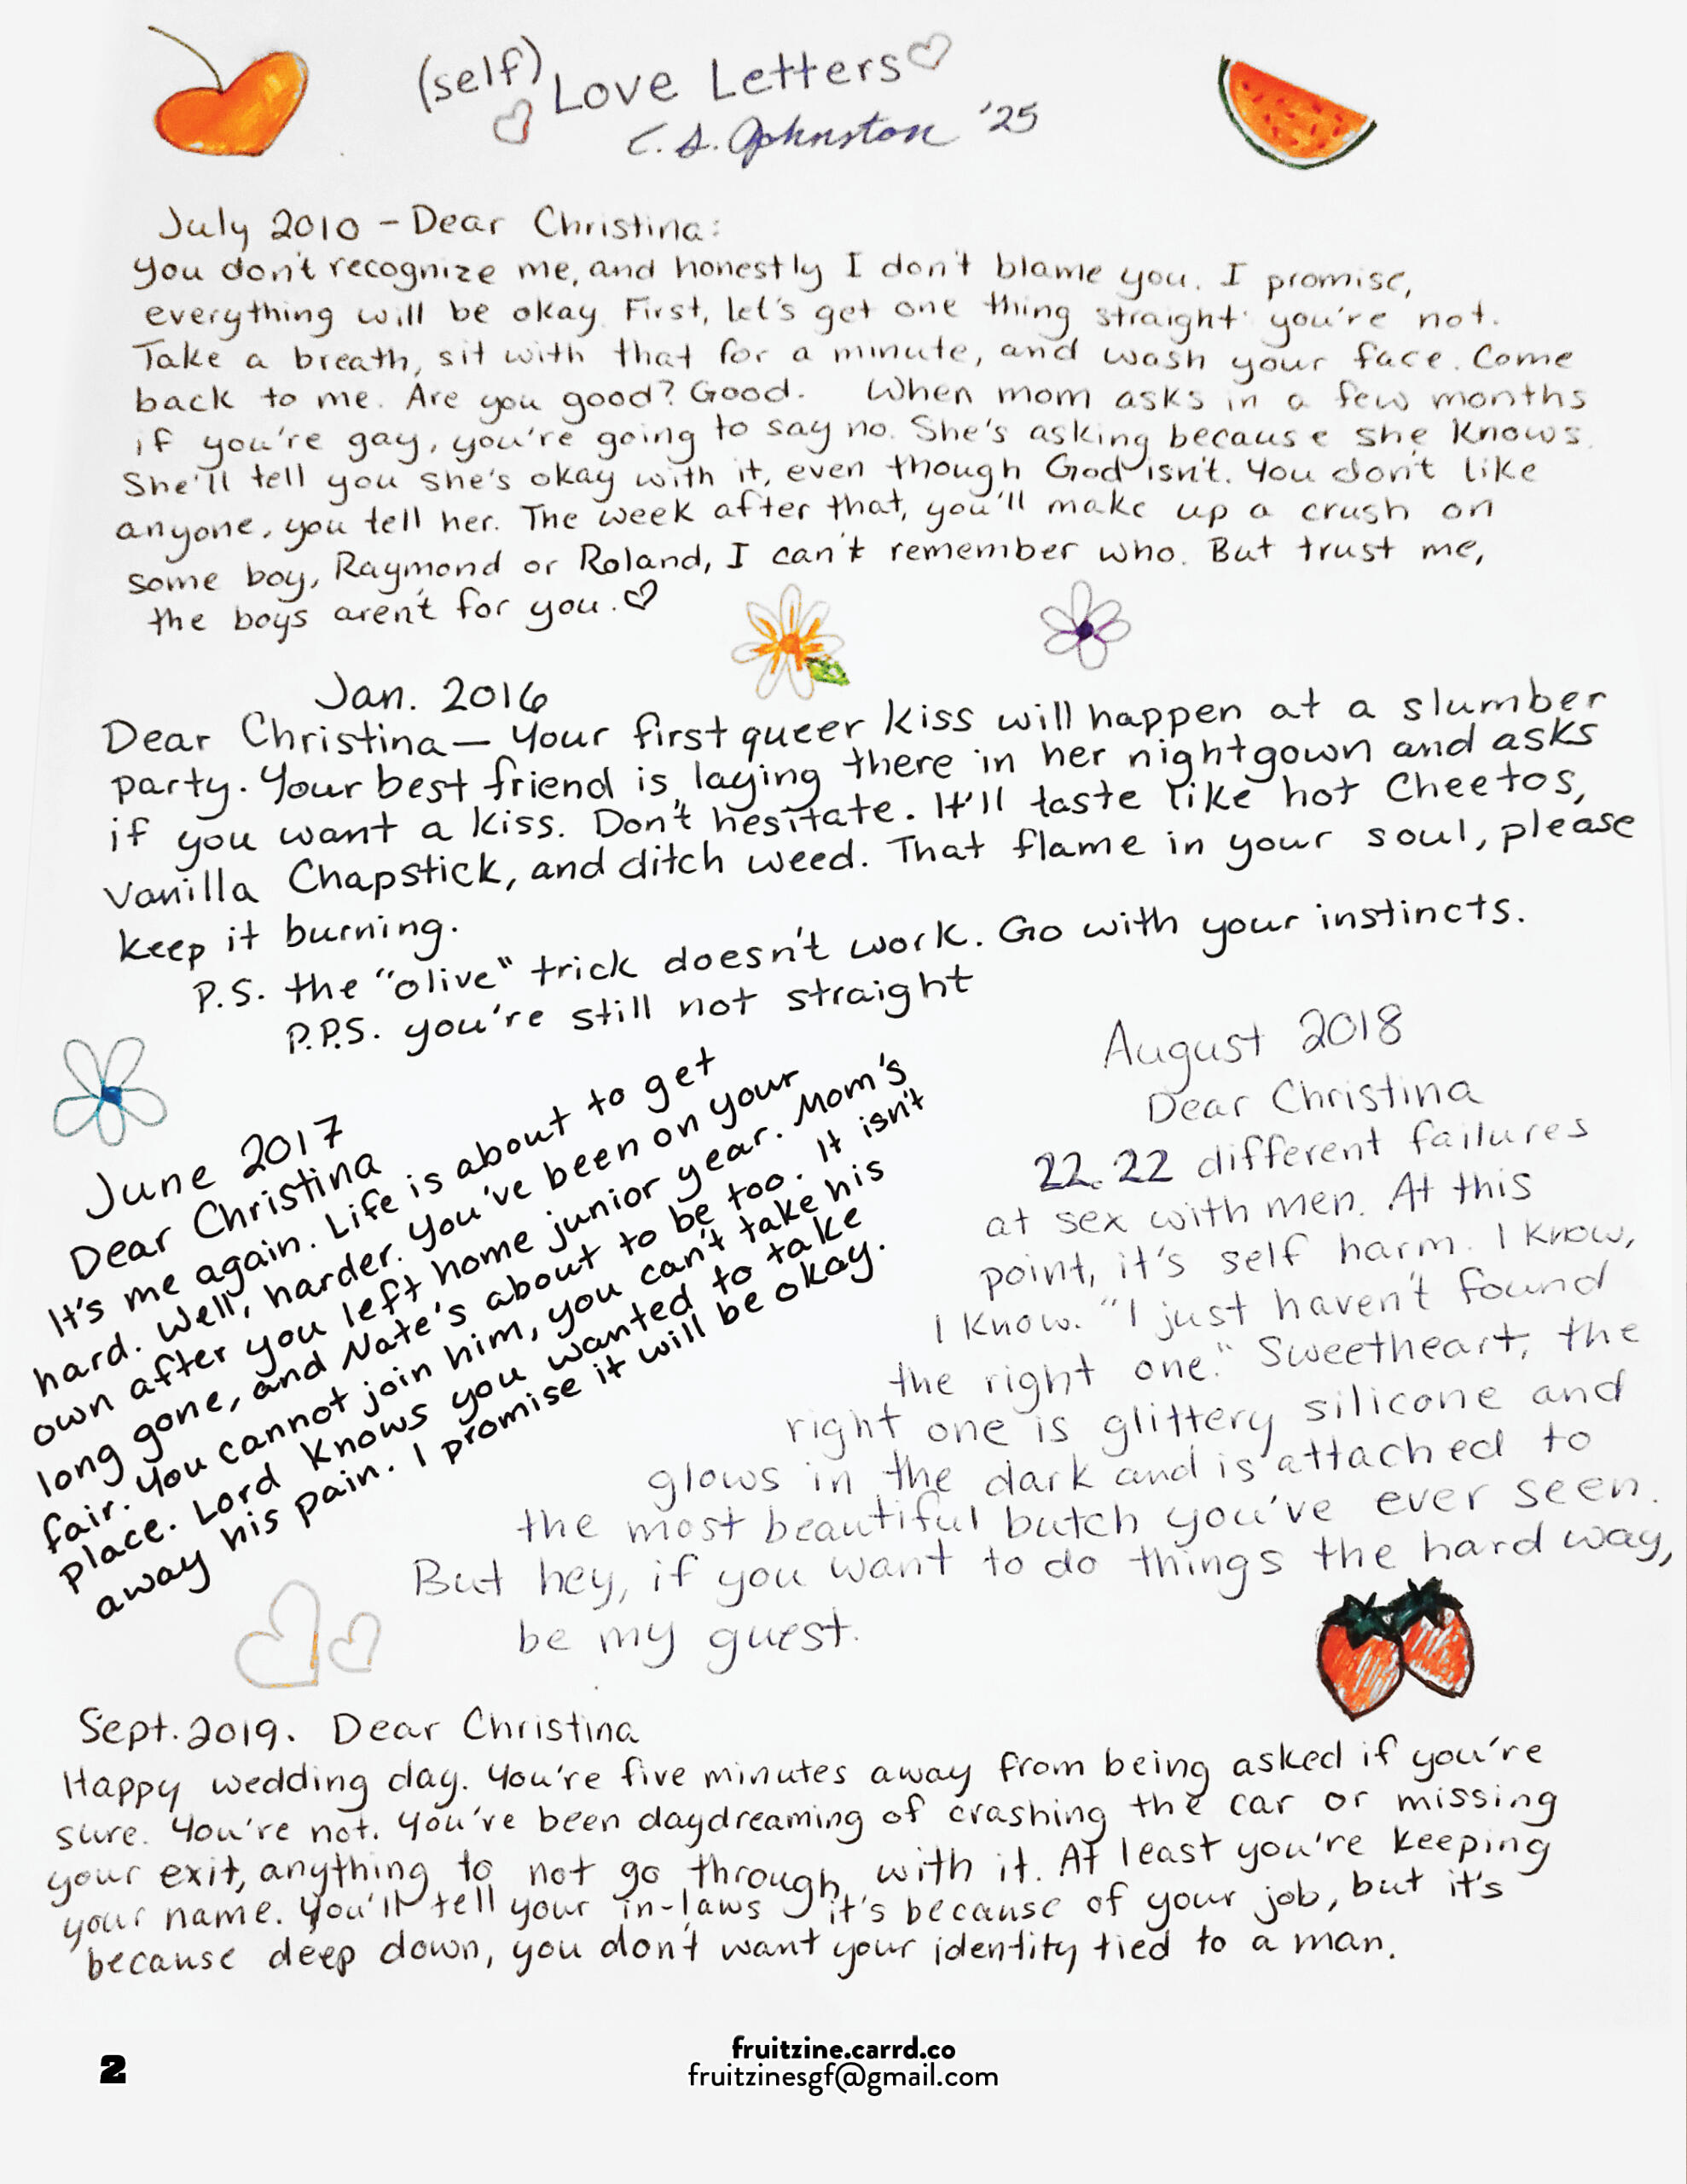 (self) Love Letters
C. S. Johnston '25
July 2010 - Dear Christina:
you don't recognize me, and honestly I don't blame you. I promise,
everything will be okay. First, let's get one thing straight: you're not.
Take a breath, sit with that for a minute, and wash your face. Come
back to me. Are you good? Good. When mom asks in a few months
if you're gay, you're going to say no. She's asking because she knows.
She'll tell you she's okay with it, even though God isn't. You don't like
anyone, you tell her. The week after that, you'll make up a crush on
some boy, Raymond or Roland, I can't remember who. But trust me,
the boys aren't for you.
Jan. 2016
Dear Christina— Your first queer kiss will happen at a slumber
party. Your best friend is laying there in her nightgown and asks
if you want a kiss. Don't hesitate. It'll taste like hot Cheetos,
Vanilla Chapstick, and ditch weed. That flame in your soul, please
keep it burning.
P.S. the "olive" trick doesn't work. Go with your instincts.
P.P.S. you're still not straight
June 2017
Dear Christina
It's me again. Life is about to get
hard. Well, harder. You've been on your
own after you left home junior year. Mom's
long gone, and Nate's about to be too. It isn't
fair. You cannot join him, you can't take his
place. Lord knows you wanted to take
away his pain. I promise it will be okay.
August 2018
Dear Christina
22. 22 different failures
at sex with men. At this
point, it's self harm. I know,
I know. "I just haven't found
the right one." Sweetheart, the
right one is glittery silicone and
glows in the dark and is attached to
the most beautiful butch you've ever seen.
But hey, if you want to do things the hard way,
be my guest.
Sept. 2019. Dear Christina
Happy wedding day. You're five minutes away from being asked if you're
sure. You're not. You've been daydreaming of crashing the car or missing
your exit, anything to not go through with it. At least you're keeping
your name. You'll tell your in-laws it's because of your job, but it's
because deep down, you don't want your identity tied to a man.
2
fruitzine.carrd.co
fruitzinesgf@gmail.com